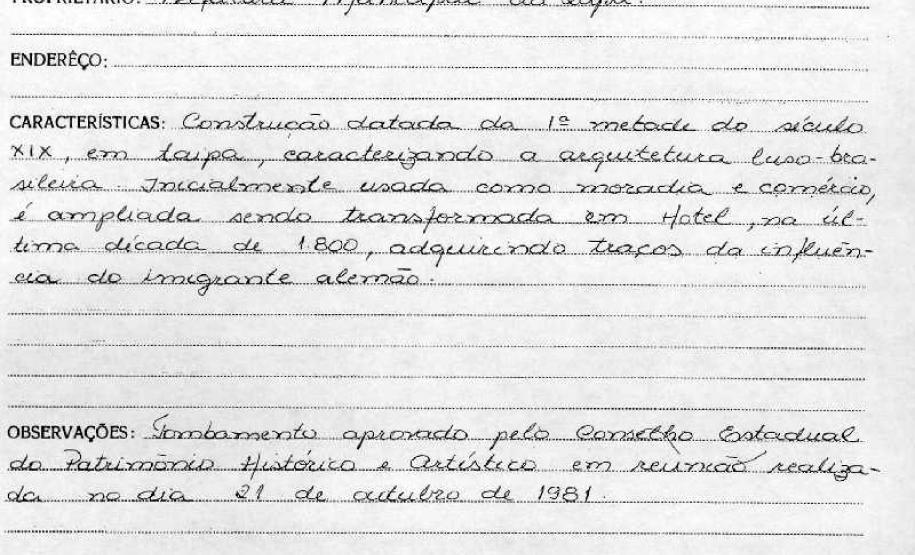 PROPRIETÁRIO: Municipal da Lapa.
ENDERÊÇO:
CARACTERÍSTICAS: Construção datada da 1ª metade do século
XIX, em taipa, caracterizando a arquitetura luso-bra-
sileira. Inicialmente usada como moradia e comércio,
é ampliada sendo transformada em Hotel, na úl-
tima década de 1.800, adquirindo traços da influên-
cia do imigrante alemão.
OBSERVAÇÕES: Tombamento aprovado pelo Conselho Estadual
do Patrimônio Histórico e Artístico em reunião realiza-
da no dia 21 de outubro de 1981.